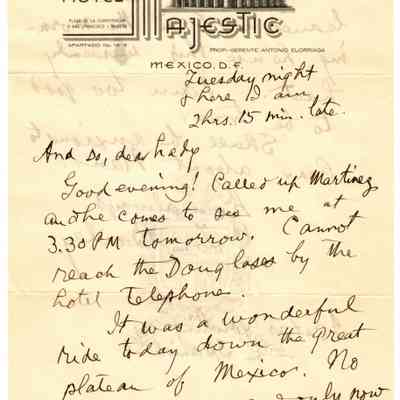 HOTEL
MAJESTIC
PLAZA DE LA CONSTITUCION
APARTADO
PROP.-GERENTE ANTONIO ELORRIAGA
MEXICO, D.F.
Tuesday night
& here I am
2 hrs. 15 min. late.
And so, dear lady
Good evening! Called up Martinez
and he comes to see me at
3.30 PM tomorrow. Cannot
reach the Douglases by the
hotel telephone.
It was a wonderful
ride today down the great
plateau of Mexico. No
only now